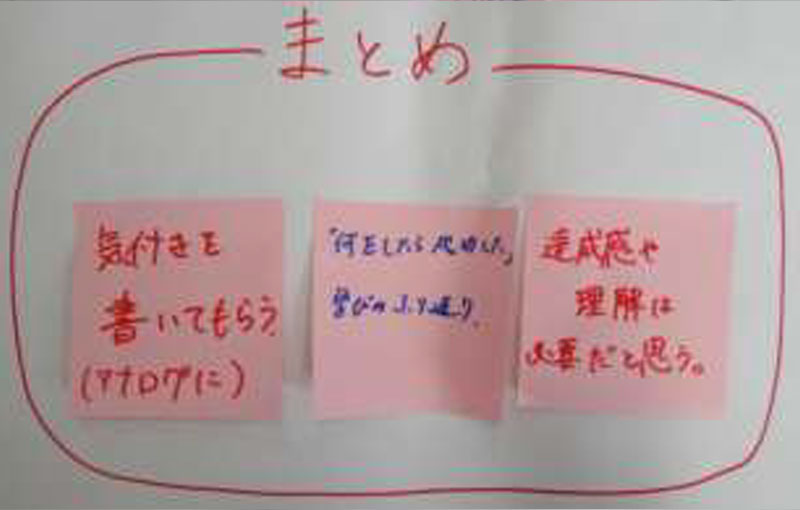 まとめ
気付きを
書いてもらう
(アナログに)
「何をしたら成功した」
学びのふり返り
達成感や
理解は
必要だと思う。